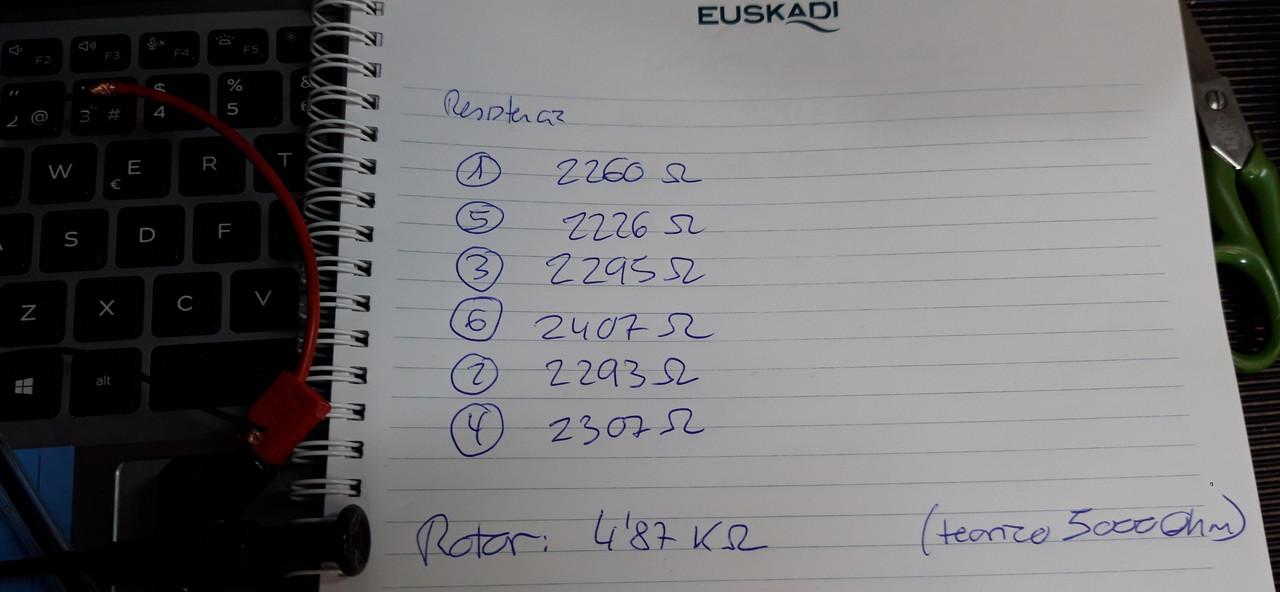 EUSKADI
F2 F3 F4 F5
" $ % &
2 @ 3 # 4 5 6
W E R T
€
S D F
Z X C V
alt
① 2260 Ω
⑤ 2226 Ω
③ 2295 Ω
⑥ 2407 Ω
② 2293 Ω
④ 2307 Ω
Rotor: 4'87 KΩ (teorico 5000 Ohm)